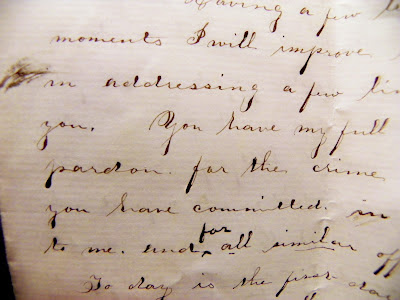 Having a few
moments I will improve
in addressing a few
you. You have my full
pardon. for the crime
you have committed. in
to me. and for all similar
To day is the first day